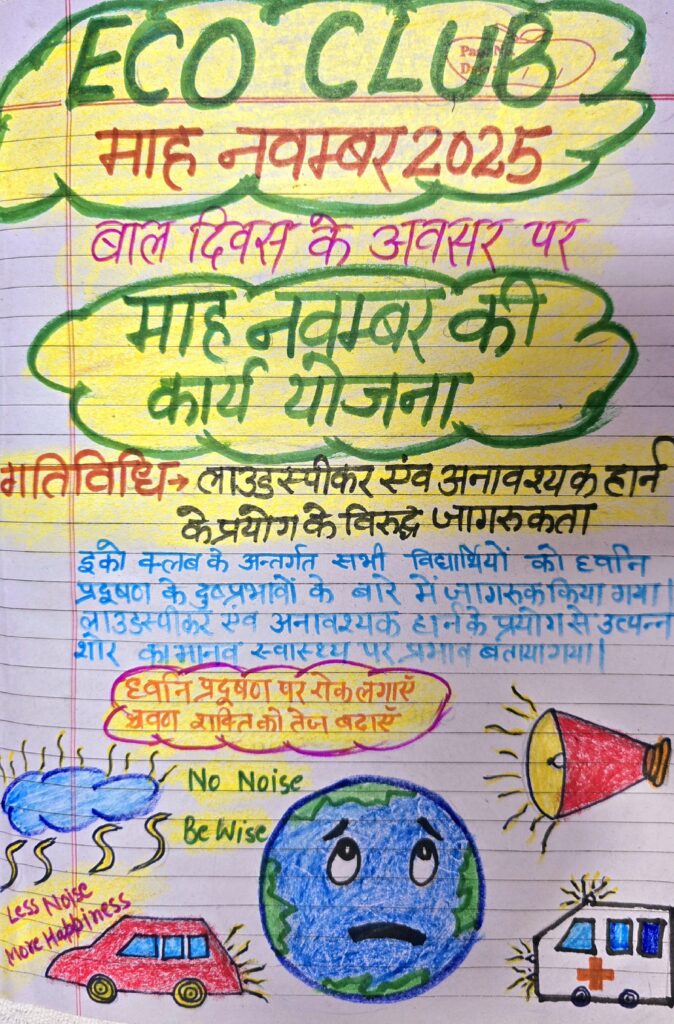 ECO CLUB
माह नवम्बर 2025
बाल दिवस के अवसर पर
माह नवम्बर की
कार्य योजना
गतिविधि→ लाउडस्पीकर एंव अनावश्यक हार्न
के प्रयोग के विरुद्ध जागरुकता
इको क्लब के अन्तर्गत सभी विद्यार्थियों को ध्वनि
प्रदूषण के दुष्प्रभावों के बारे में जागरुक किया गया।
लाउडस्पीकर एंव अनावश्यक हार्न के प्रयोग से उत्पन्न
शोर का मानव स्वास्थ्य पर प्रभाव बताया गया।
ध्वनि प्रदूषण पर रोक लगाएँ
श्रवण शक्ति को तेज बढाएँ
No Noise
Be Wise
Less Noise
More Habbiness